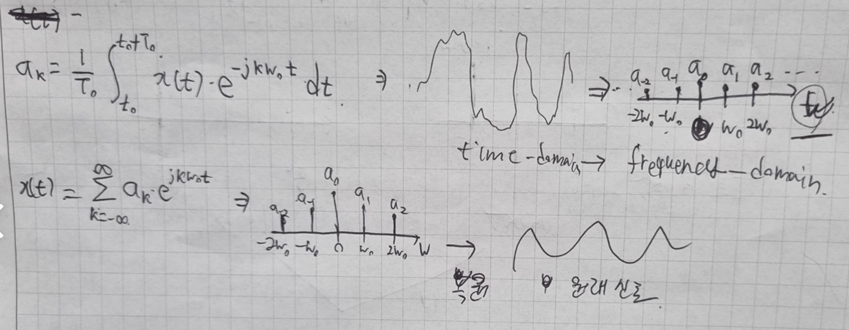 a_k = 1/T₀ ∫_{t₀}^{t₀+T₀} x(t)·e^{-jkw₀t} dt. ⇒ ⇒ a₋₂ a₋₁ a₀ a₁ a₂ ....
-2w₀ -w₀ w₀ 2w₀
time-domain → frequency-domain.
x(t) = Σ_{k=-∞}^{∞} a_k·e^{jkw₀t} ⇒ a₋₂ a₋₁ a₀ a₁ a₂
-2w₀ -w₀ 0 w₀ 2w₀ w →
원래 신호